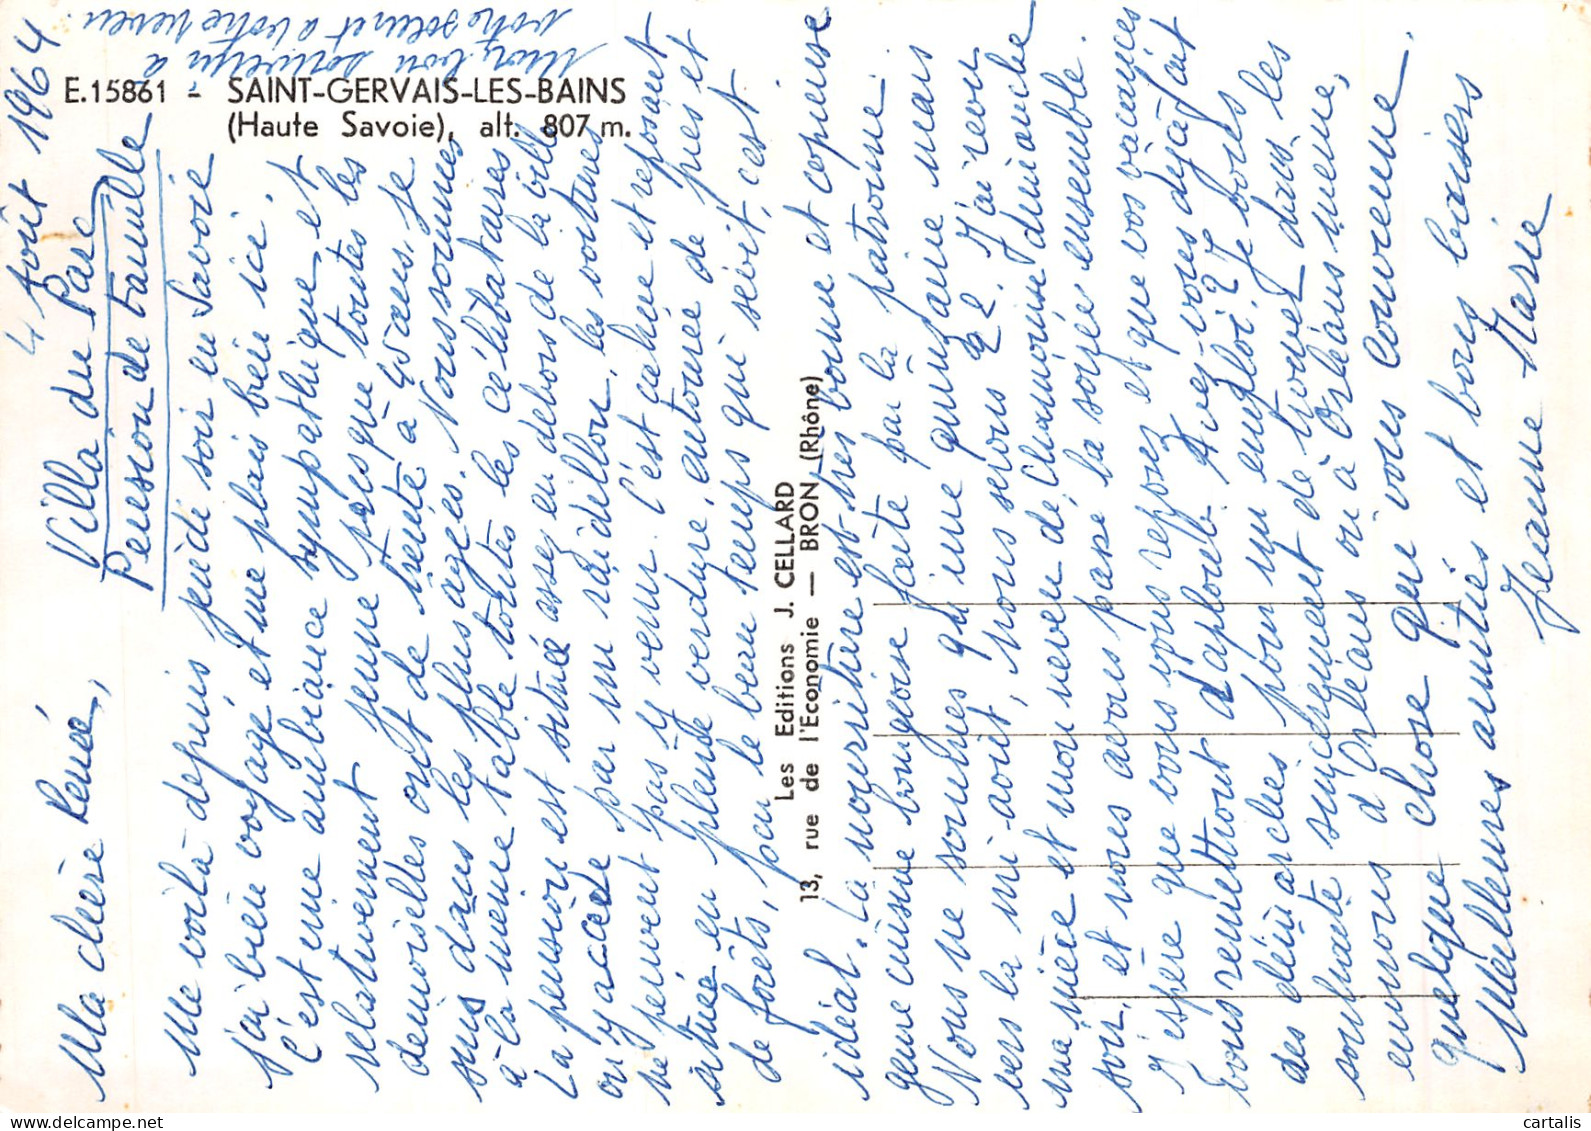 E.15861 - SAINT-GERVAIS-LES-BAINS
(Haute Savoie), alt. 807 m.
Les Editions J. CELLARD
13, rue de l'Economie — BRON (Rhône)
4 Août 1964
Villa du Parc
Pension de Famille
Ma chère Renée,
Me voilà depuis jeudi soir en Savoie
j'ai bien voyagé et me plais bien ici.
C'est une ambiance sympathique et
relativement jeune presque toutes les
demoiselles ont de trente à 45 ans. Je
suis dans les plus agées. Nous sommes
à la même table toutes les célibataires
La pension est située assez en dehors de la ville
on y accède par un raidillon, les voitures
ne peuvent pas y venir. C'est calme et reposant
située en pleine verdure, entourée de près et
de forêts, par le beau temps qui sévit, c'est
idéal. La nourriture est très bonne et copieuse
genre cuisine bourgeoise faite par la patronne.
Nous ne sommes qu'une quinzaine mais
vers la mi-août, nous serons 22. J'ai revu
ma nièce et mon neveu de Chamonix dimanche
soir, et nous avons passé la soirée ensemble.
J'espère que vous vous reposez et que vos vacances
vous remettront d'aplomb. Avez-vous déjà fait
des démarches pour un emploi ? Je vous
souhaite sincèrement de trouver dans les
environs d'Orléans ou à Orléans même,
quelque chose qui vous convienne.
Meilleures amitiés et bons baisers
Jeanne Marie
Mon bon souvenir à
votre soeur et à votre neveu